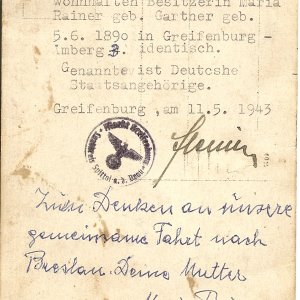 wohnhaften Besitzerin Maria
Rainer geb. Gartner geb.
5.6. 1890 in Greifenburg -
Amberg 3. identisch.
Genannte ist Deutcshe
Staatsangehörige.
Greifenburg ,am 11.5. 1943
Zum Denken an unsere
gemeinsame Fahrt nach
Breslau. Deine Mutter